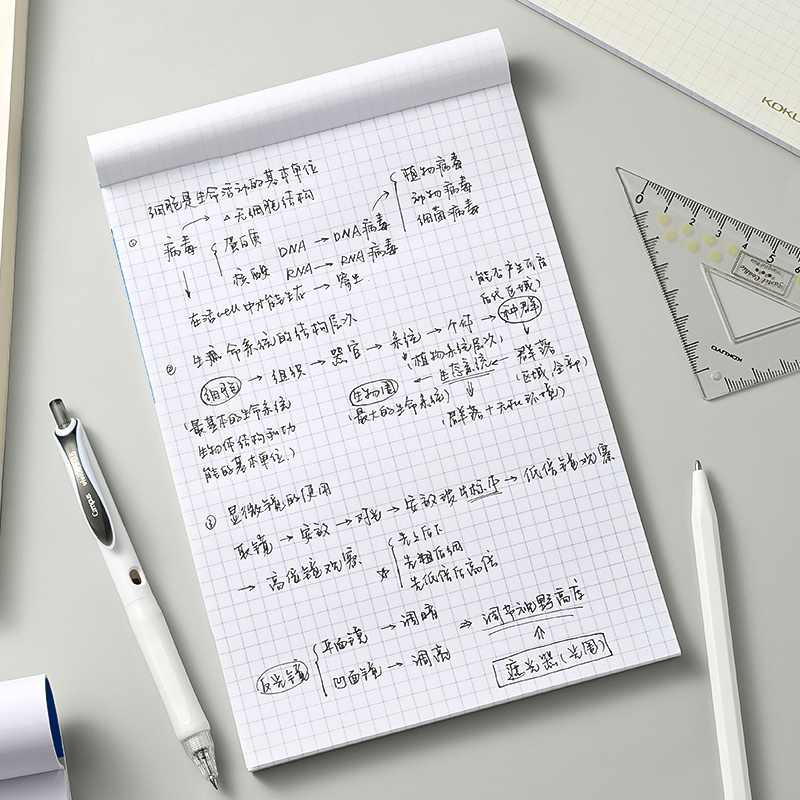 细胞是生命活动的基本单位
① 病毒 → △无细胞结构
蛋白质
核酸 DNA → DNA病毒
RNA → RNA病毒
植物病毒
动物病毒
细菌病毒
在活cell中才能生存 → 寄生
② 生命系统的结构层次
细胞 → 组织 → 器官 → 系统 → 个体 → 种群
(能否产生可育
后代 区域)
(植物无系统层次)
群落
(区域 全部)
生态系统
(群落+无机环境)
生物圈
(最大的生命系统)
(最基本的生命系统
生物体结构和功
能的基本单位)
③ 显微镜的使用
取镜 → 安放 → 对光 → 安放玻片标本 → 低倍镜观察
→ 高倍镜观察
☆ 先上后下
先粗后细
先低倍后高倍
反光镜
平面镜 → 调暗
凹面镜 → 调亮
⇒ 调节视野亮度
遮光器(光圈)
KOKU
0 1 2 3 4 5 6
KOKUYO
Campus